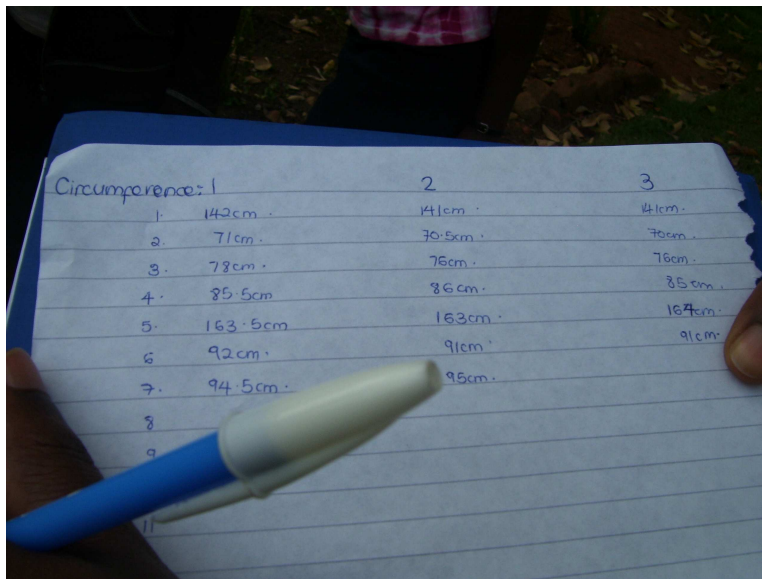 Circumference: 1 2 3
1. 142cm. 141cm. 141cm.
2. 71cm. 70.5cm. 70cm.
3. 78cm. 76cm. 76cm.
4. 85.5cm 86cm. 85cm.
5. 163.5cm 163cm. 164cm.
6 92cm. 91cm. 91cm.
7. 94.5cm. 95cm.
8
9
11